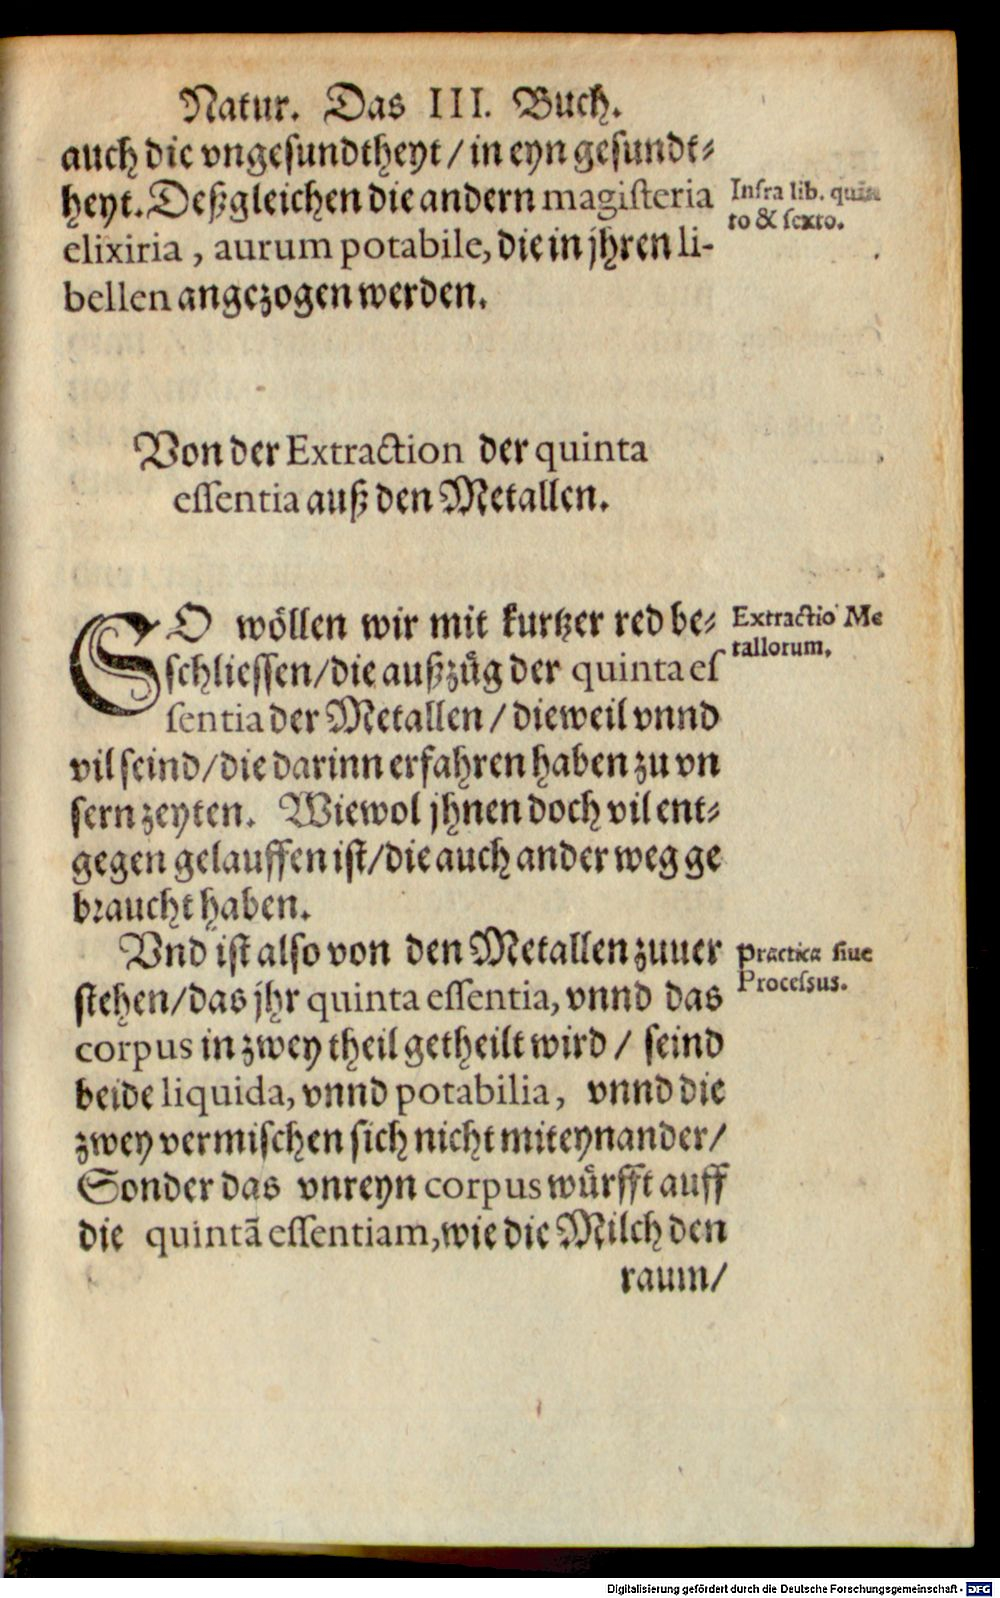 Natur. Das III. Buch.
auch die vngesundtheyt / in eyn gesundt⸗
heyt. Deßgleichen die andern magisteria
Infra lib. quin
to & sexto.
elixiria, aurum potabile, die in jhren li-
bellen angezogen werden.
Von der Extraction der quinta
essentia auß den Metallen.
SO wöllen wir mit kurtzer red be⸗
schliessen / die außzůg der quinta es
sentia der Metallen / dieweil vnnd
Extractio Me
tallorum.
vil seind / die darinn erfahren haben zu vn
sern zeyten. Wiewol jhnen doch vil ent⸗
gegen gelauffen ist / die auch ander weg ge
braucht haben.
Vnd ist also von den Metallen zuuer
stehen / das jhr quinta essentia, vnnd das
Practica siue
Processus.
corpus in zwey theil getheilt wird / seind
beide liquida, vnnd potabilia, vnnd die
zwey vermischen sich nicht miteynander /
Sonder das vnreyn corpus würfft auff
die quintā essentiam, wie die Milch den
raum /
Digitalisierung gefördert durch die Deutsche Forschungsgemeinschaft - DFG